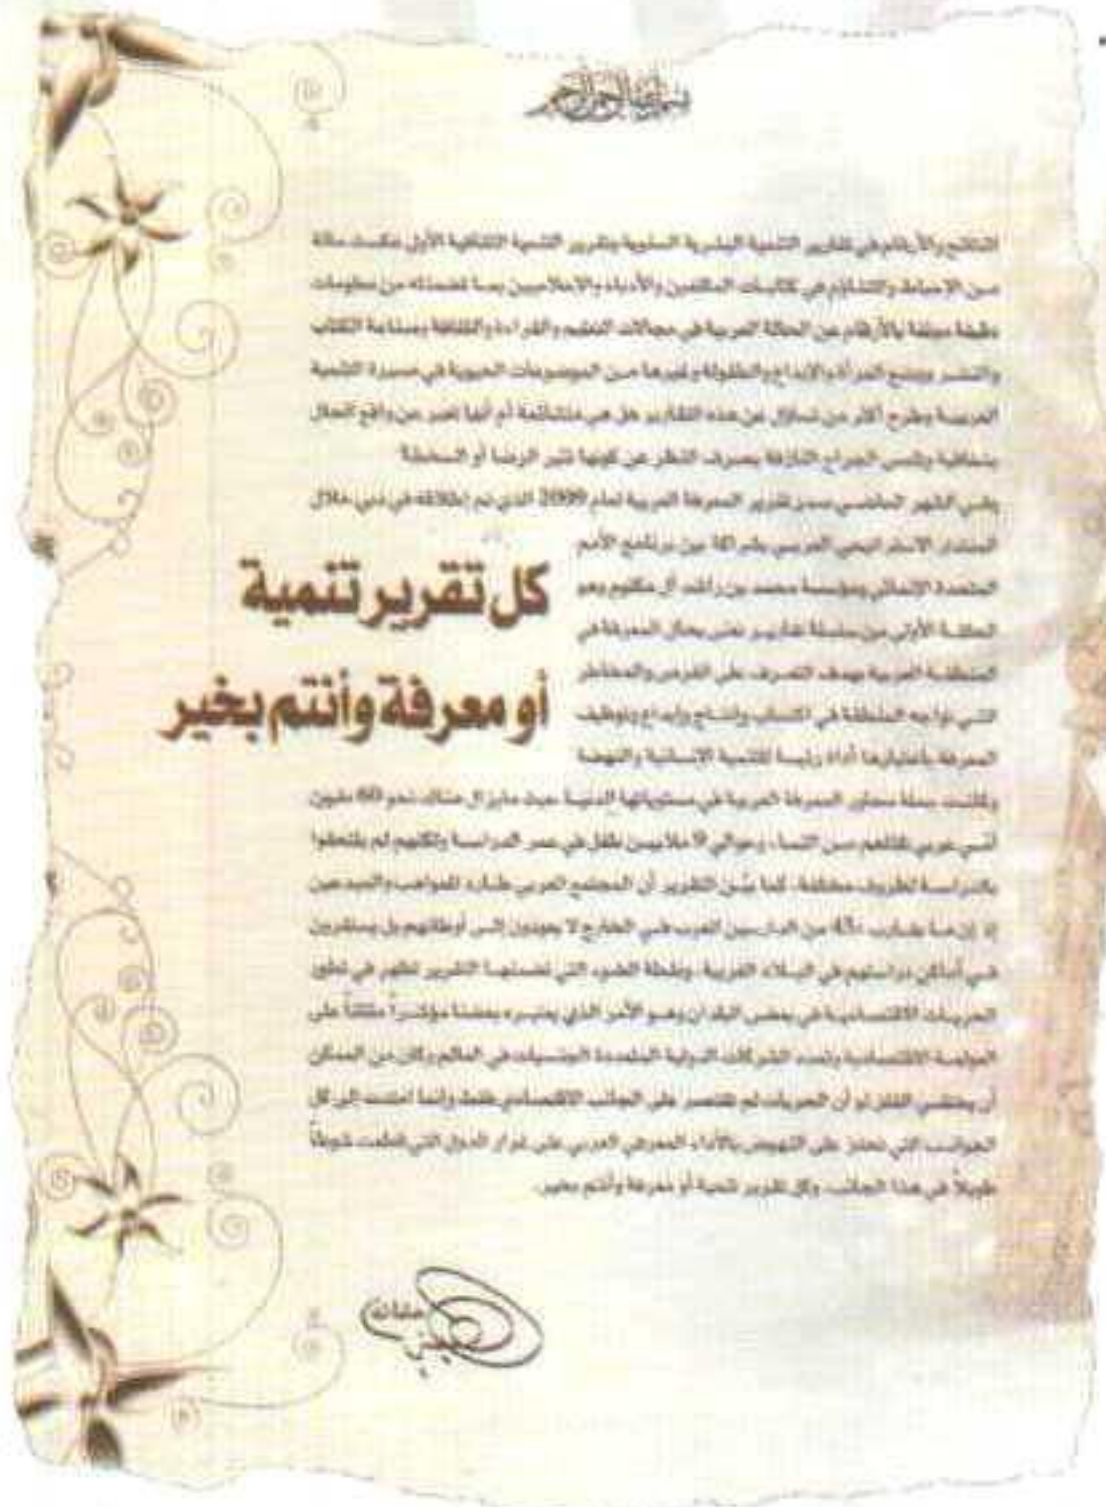 بسم الله الرحمن الرحيم
كل تقرير تنمية
أو معرفة وأنتم بخير
النتائج والأرقام في تقارير التنمية البشرية السنوية وتقرير التنمية الثقافية الأول عكست حالة
من الإحباط والتشاؤم في كتابات المثقفين والأدباء والإعلاميين بما تضمنته من معلومات
دقيقة موثقة بالأرقام عن الحالة العربية في مجالات التعليم والقراءة والثقافة وصناعة الكتاب
والنشر ووضع المرأة والإبداع والطفولة وغيرها من الموضوعات الحيوية في مسيرة التنمية
العربية وطرح أكثر من تساؤل عن هذه التقارير هل هي متشائمة أم أنها تعبر عن واقع الحال
بشفافية وتلمس الجراح النازفة بصرف النظر عن كونها تثير الرضا أو السخط؟
وفي الشهر الماضي صدر تقرير المعرفة العربية لعام 2009 الذي تم إطلاقه في دبي خلال
المنتدى الاستراتيجي العربي بشراكة بين برنامج الأمم
المتحدة الإنمائي ومؤسسة محمد بن راشد آل مكتوم وهو
الحلقة الأولى من سلسلة تقارير تعنى بحال المعرفة في
المنطقة العربية بهدف التعرف على الفرص والمخاطر
التي تواجه المنطقة في اكتساب وإنتاج وإبداع وتوظيف
المعرفة باعتبارها أداة رئيسة للتنمية الإنسانية والنهضة
وكانت جملة محاور المعرفة العربية في مستوياتها الدنيا حيث مايزال هناك نحو 60 مليون
أمي عربي ثلثاهم من النساء، وحوالي 9 ملايين طفل في عمر الدراسة ولكنهم لم يلتحقوا
بالدراسة لظروف مختلفة، كما بيّن التقرير أن المجتمع العربي طارد للمواهب والمبدعين
إذ إن ما يقارب 45٪ من الدارسين العرب في الخارج لا يعودون إلى أوطانهم بل يستقرون
في أماكن دراستهم في البلاد الغربية، ونقطة الضوء التي تضمنها التقرير تظهر في تطور
الحريات الاقتصادية في بعض البلدان وهو الأمر الذي يعتبره بعضنا مؤشراً مقلقاً على
العولمة الاقتصادية وتمدد الشركات الدولية المتعددة الجنسيات في العالم وكان من الممكن
أن يختفي القلق لو أن الحريات لم تقتصر على الجانب الاقتصادي فقط وإنما امتدت إلى كل
الجوانب التي تحفز على النهوض بالأداء المعرفي العربي على غرار الدول التي قطعت شوطاً
طويلاً في هذا الجانب. وكل تقرير تنمية أو معرفة وأنتم بخير.